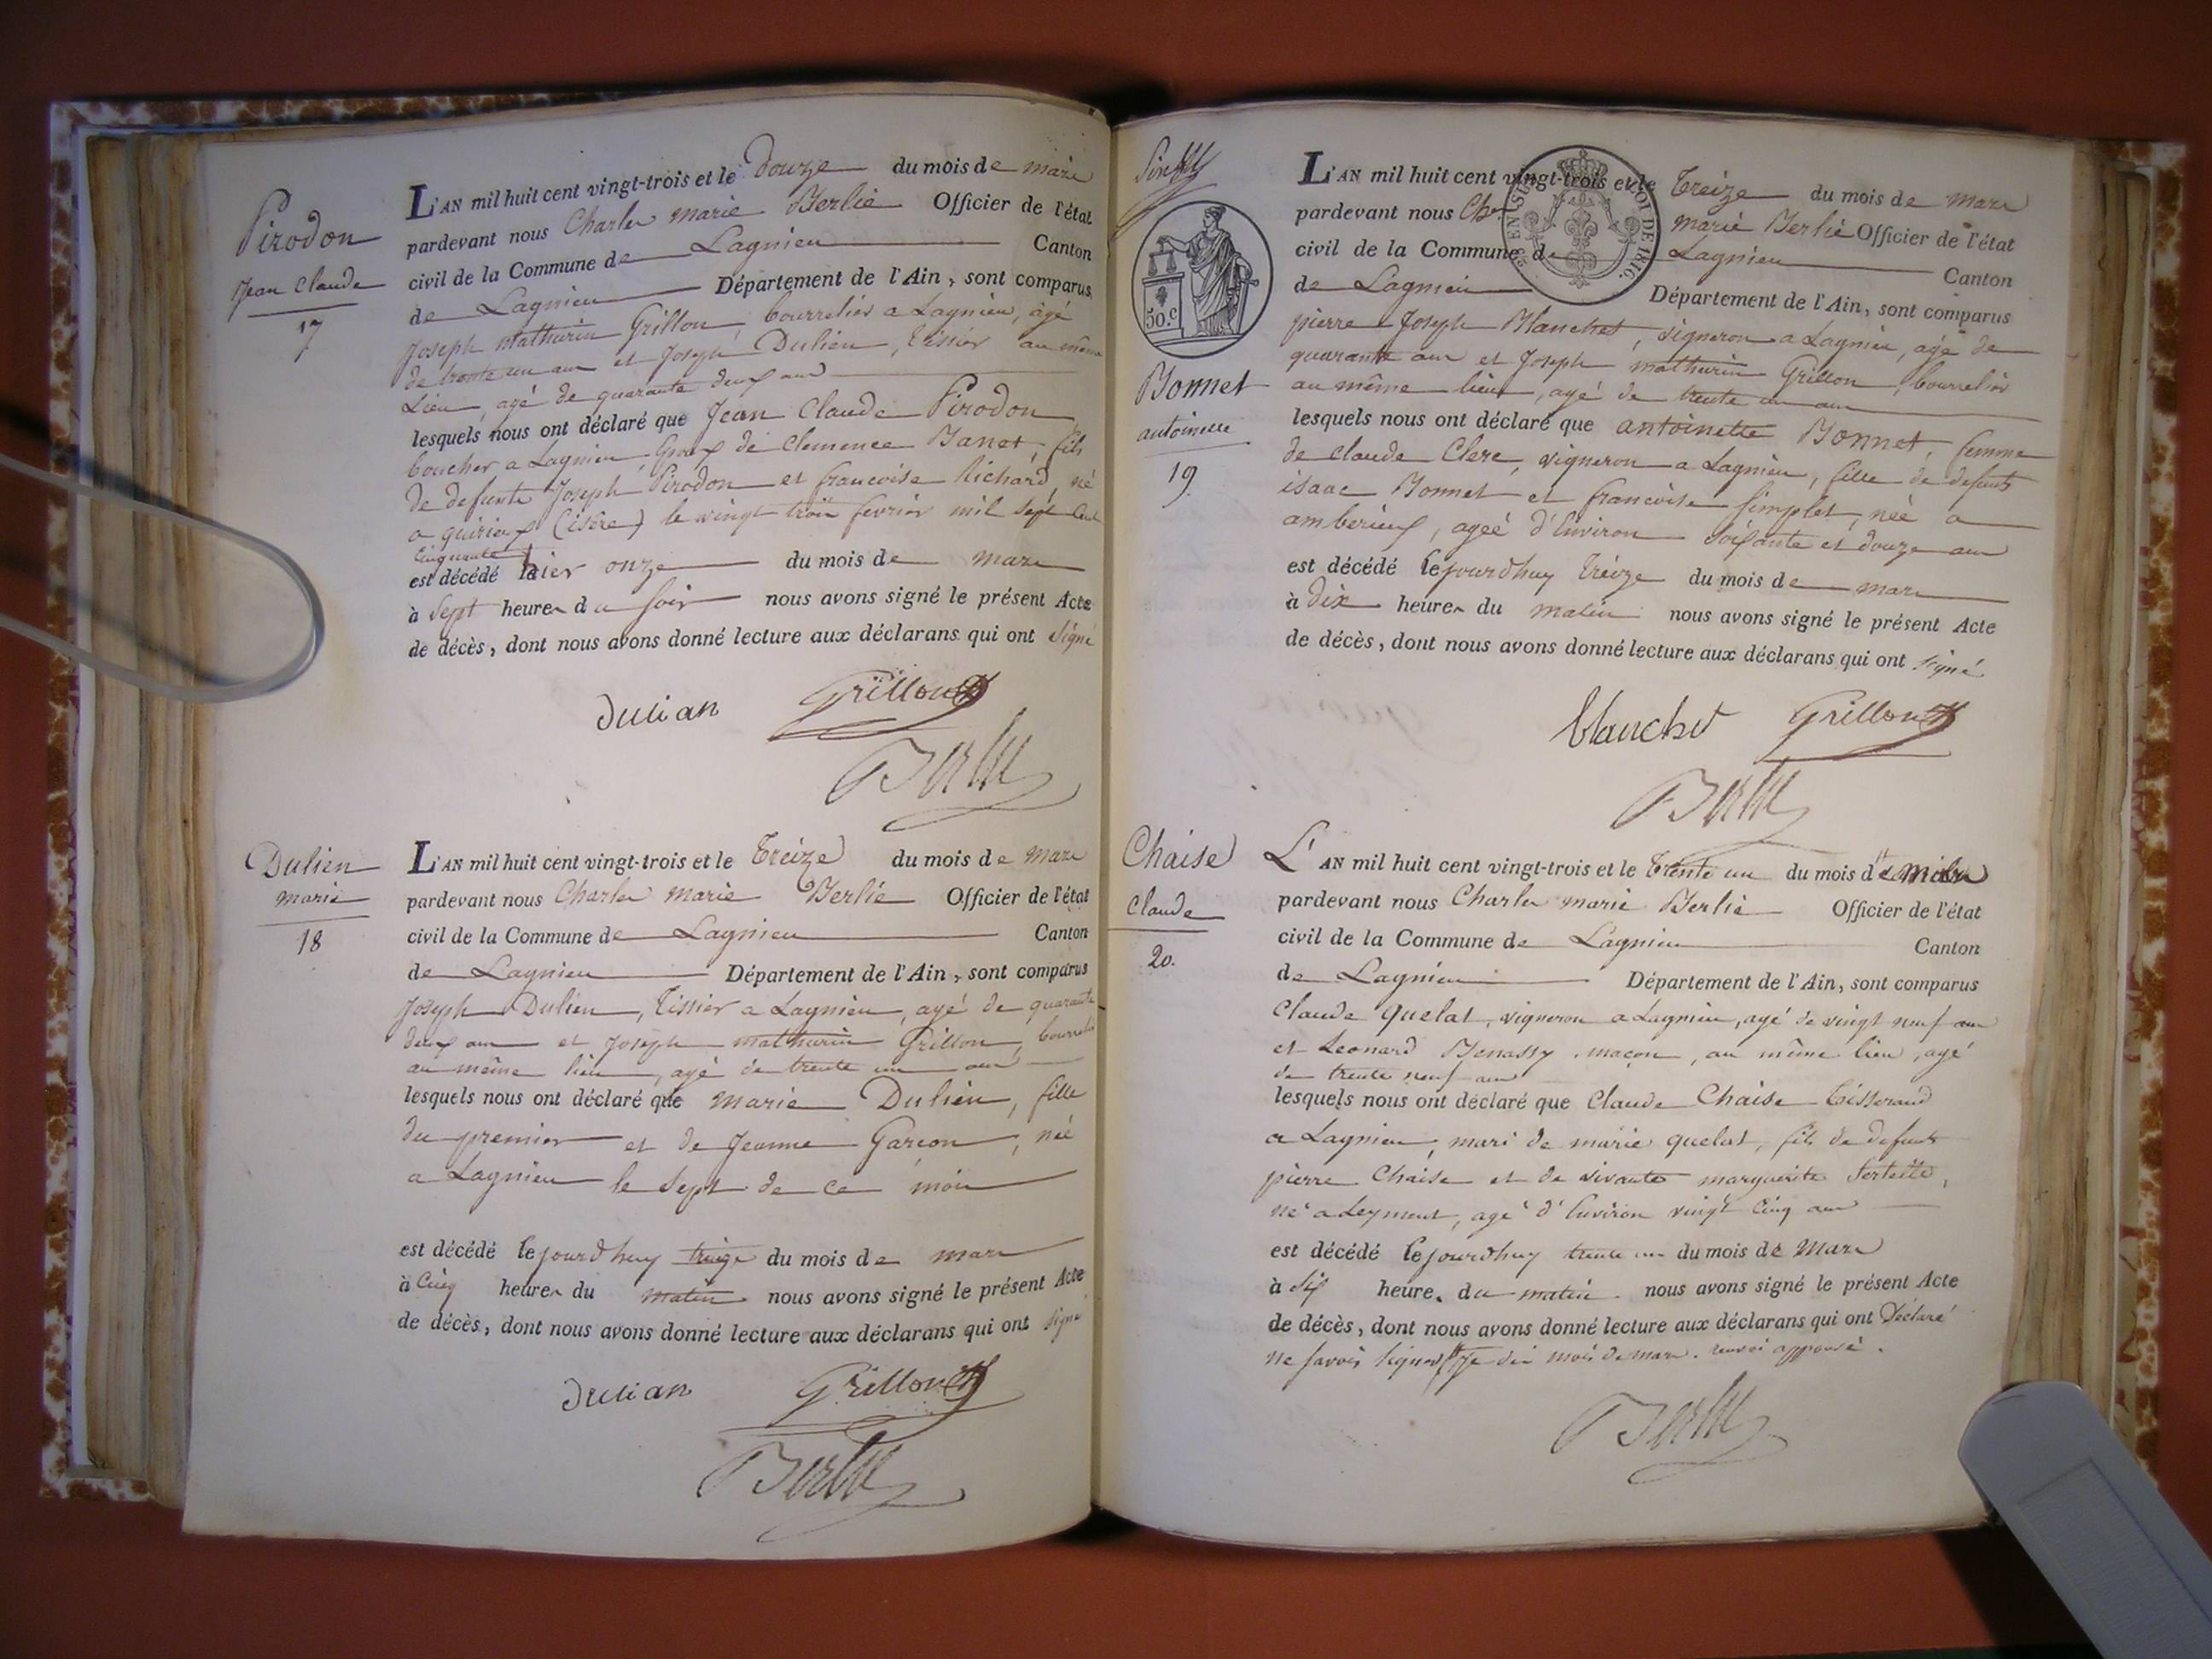 Pirodon
Jean Claude
17
L'AN mil huit cent vingt-trois et le douze du mois de mars
pardevant nous Charles marie Berlié Officier de l'état
civil de la Commune de Lagnieu Canton
de Lagnieu Département de l'Ain, sont comparus
Joseph mathurin Grillon, bourrelier a Lagnieu, agé
de trente un ans et Joseph Dulien, tissier au même
Lieu, agé de quarante deux ans
lesquels nous ont déclaré que Jean Claude Pirodon
boucher a Lagnieu, Epoux de Clemence Janet, fils
de defunts Joseph Pirodon et francoise Richard, né
a quirieux (isère) le vingt trois fevrier mil sept cent
cinquante
est décédé hier onze du mois de mars
à sept heures du soir nous avons signé le présent Acte
de décès, dont nous avons donné lecture aux déclarans qui ont signé
Dulian Grillon
Berlié
Dulien
marie
18
L'AN mil huit cent vingt-trois et le treize du mois de mars
pardevant nous Charles marie Berlié Officier de l'état
civil de la Commune de Lagnieu Canton
de Lagnieu Département de l'Ain, sont comparus
Joseph Dulien, tissier a Lagnieu, agé de quarante
deux ans et Joseph mathurin Grillon, bourrelier
au même lieu, agé de trente un ans
lesquels nous ont déclaré que marie Dulien, fille
du premier et de Jeanne Garcon, née
a Lagnieu le sept de ce mois
est décédé le jourdhuy treize du mois de mars
à cinq heures du matin nous avons signé le présent Acte
de décès, dont nous avons donné lecture aux déclarans qui ont signé
Dulian Grillon
Berlié
50.c
Bonnet
antoinette
19.
L'AN mil huit cent vingt-trois et le treize du mois de mars
pardevant nous Charles marie Berlié Officier de l'état
civil de la Commune de Lagnieu Canton
de Lagnieu Département de l'Ain, sont comparus
pierre Joseph Blanchet, vigneron a Lagnieu, agé de
quarante ans et Joseph mathurin Grillon, bourrelier
au même lieu, agé de trente un ans
lesquels nous ont déclaré que antoinette Bonnet, femme
de claude Clerc, vigneron a Lagnieu, fille de defunts
isaac Bonnet et francoise Simplet, née a
amberieux, ageé d'Environ soixante et douze ans
est décédé le jourdhuy treize du mois de mars
à dix heures du matin nous avons signé le présent Acte
de décès, dont nous avons donné lecture aux déclarans qui ont signé
blanchet Grillon
Berlié
Chaise
Claude
20.
L'AN mil huit cent vingt-trois et le trente un du mois de
pardevant nous Charles marie Berlié Officier de l'état
civil de la Commune de Lagnieu Canton
de Lagnieu Département de l'Ain, sont comparus
Claude quelat, vigneron a Lagnieu, agé de vingt neuf ans
et Leonard Benassy, maçon, au même lieu, agé
de trente neuf ans
lesquels nous ont déclaré que Claude Chaise tisserand
a Lagnieu, mari de marie quelat, fils de defunt
pierre Chaise et de vivante marguerite
né a Leyment, agé d'Environ vingt cinq ans
est décédé le jourdhuy trente un du mois de Mars
à six heures du matin nous avons signé le présent Acte
de décès, dont nous avons donné lecture aux déclarans qui ont Déclaré
ne savoir signer du mois de mars. renvoi approuvé.
Berlié